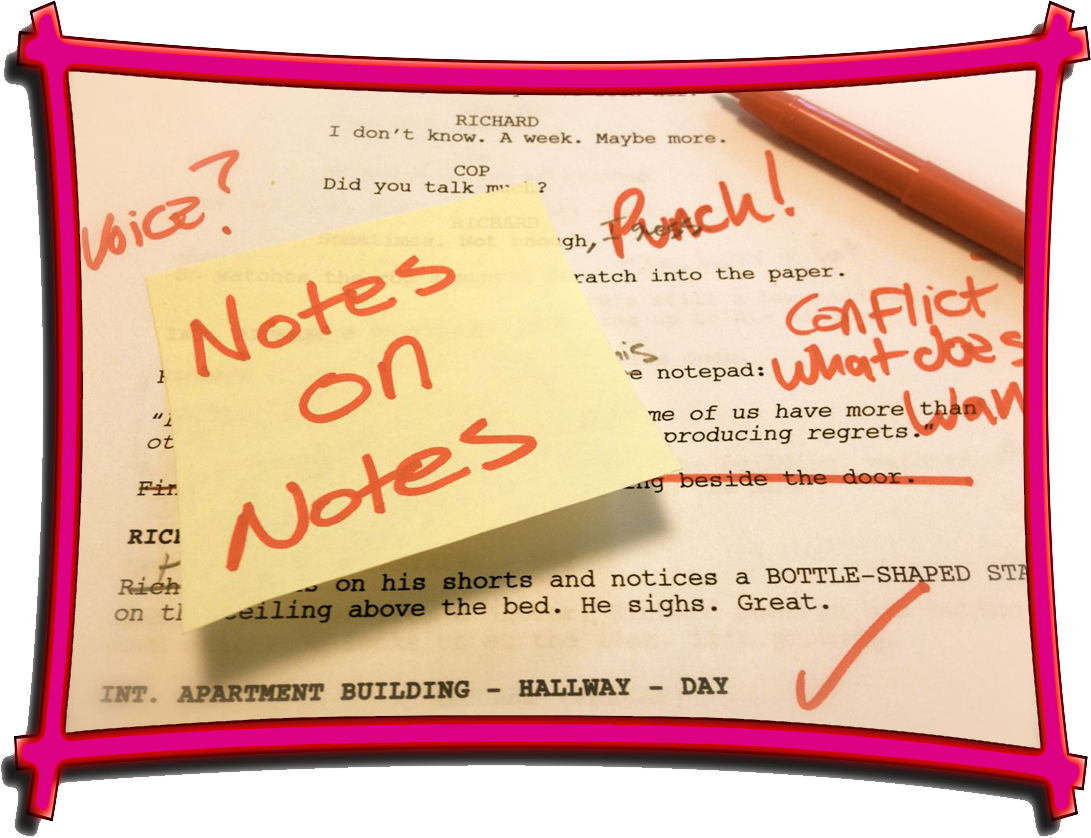 RICHARD
I don't know. A week. Maybe more.
COP
Did you talk much?
Voice?
Punch!
RICHARD
Sometimes. Not enough,
ratch into the paper.
Notes
on
Notes
Conflict
What does
Wan
notepad:
me of us have more than
producing regrets."
ing beside the door.
on his shorts and notices a BOTTLE-SHAPED STA
on th ceiling above the bed. He sighs. Great.
INT. APARTMENT BUILDING - HALLWAY - DAY